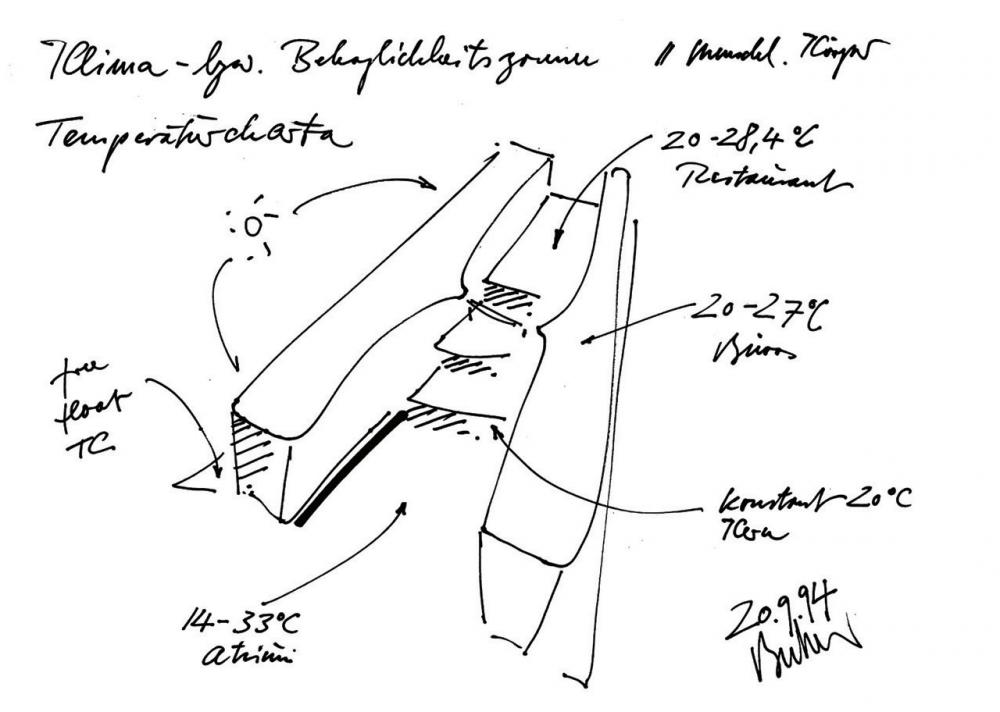 Klima - bzw. Behaglichkeitszonen // menschl. Körper
Temperaturcharta
20-28,4°C
Restaurant
20-27°C
Büros
free
float
TC
konstant 20°C
Kern
14-33°C
Atrium
20.9.94